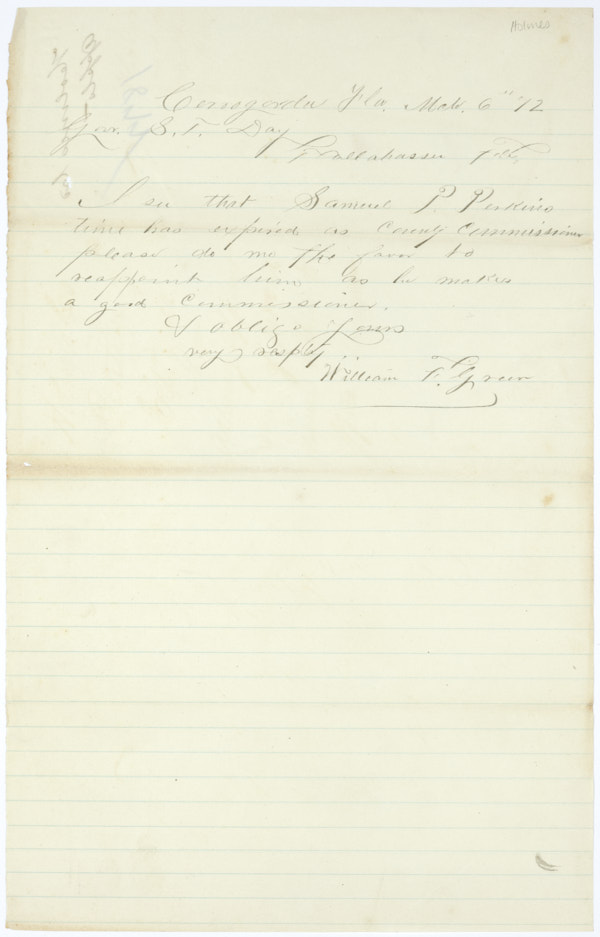 Holmes
Cerrogordo Fla. Mch. 6" 72
Gov. S. T. Day
Tallahassee Fla.
I see that Samuel P. Perkins
time has expired as County Commissioner
please do me the favor to
reappoint him as he makes
a good Commissioner.
& oblige Yours
very respty
William F. Green